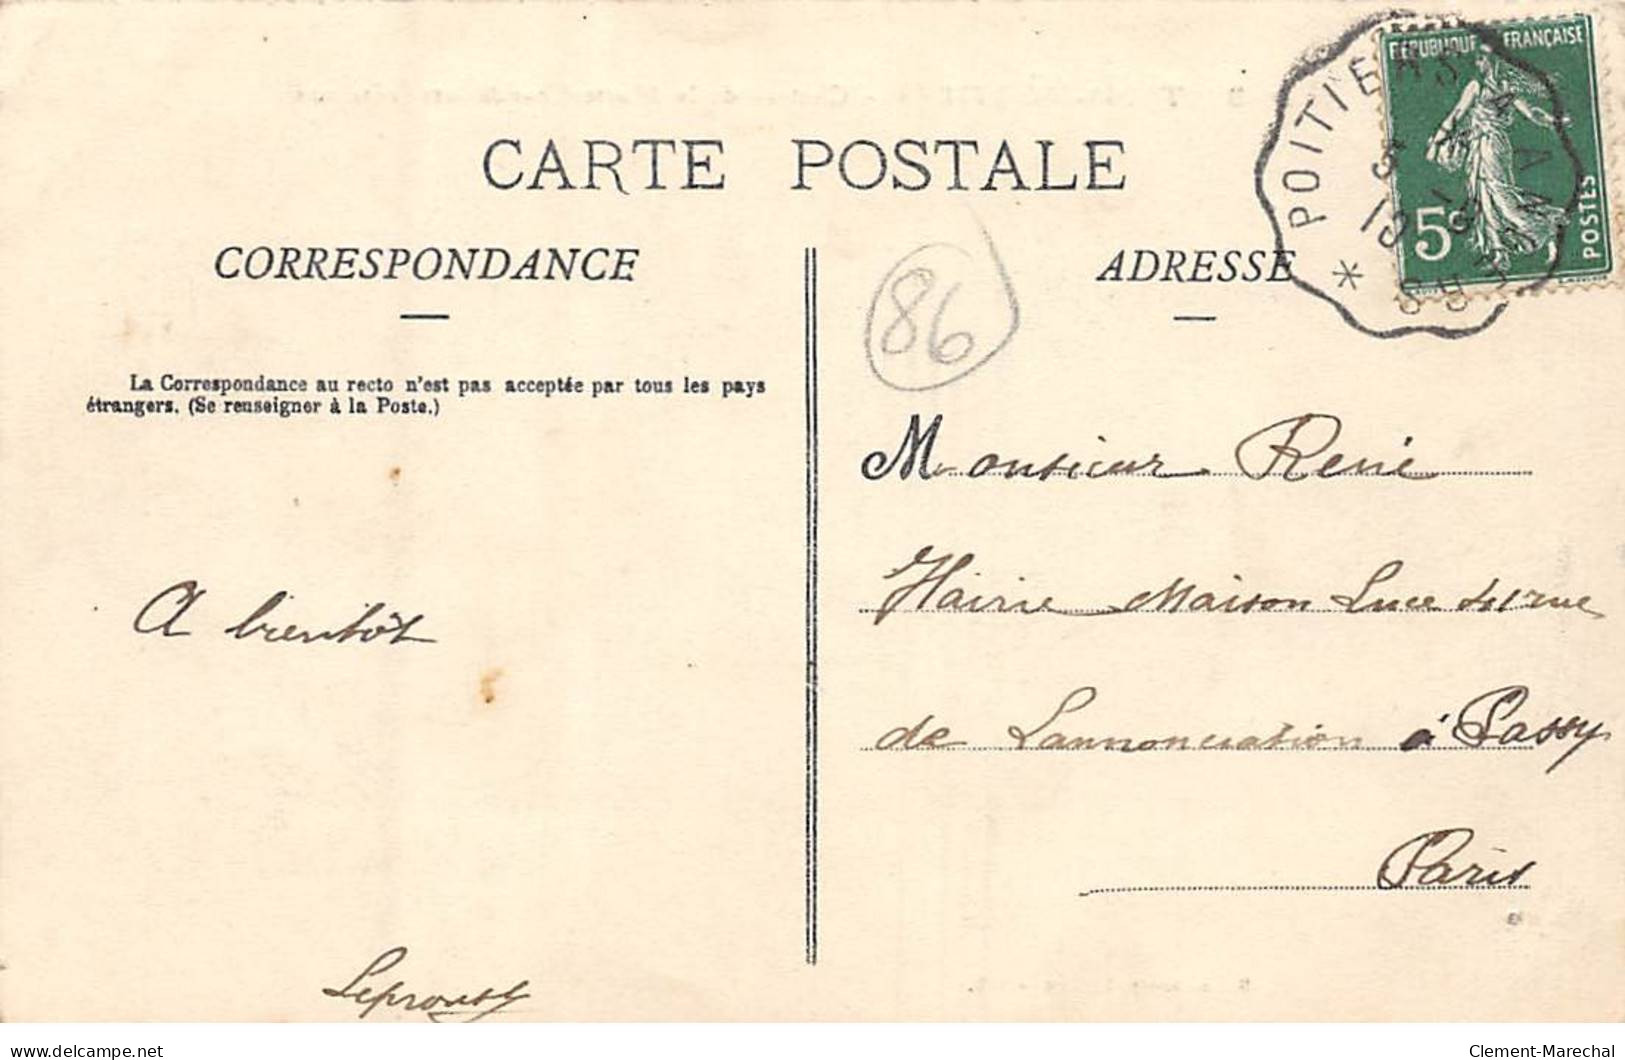 RÉPUBLIQUE FRANÇAISE
5c
POSTES
POITIERS A
CARTE POSTALE
CORRESPONDANCE
ADRESSE
86
La Correspondance au recto n'est pas acceptée par tous les pays
étrangers. (Se renseigner à la Poste.)
Monsieur René
Hairie Maison Luce rue
de Lannonciation à Passy
Paris
A bientôt
Leproust
delcampe.net
Clement-Marechal